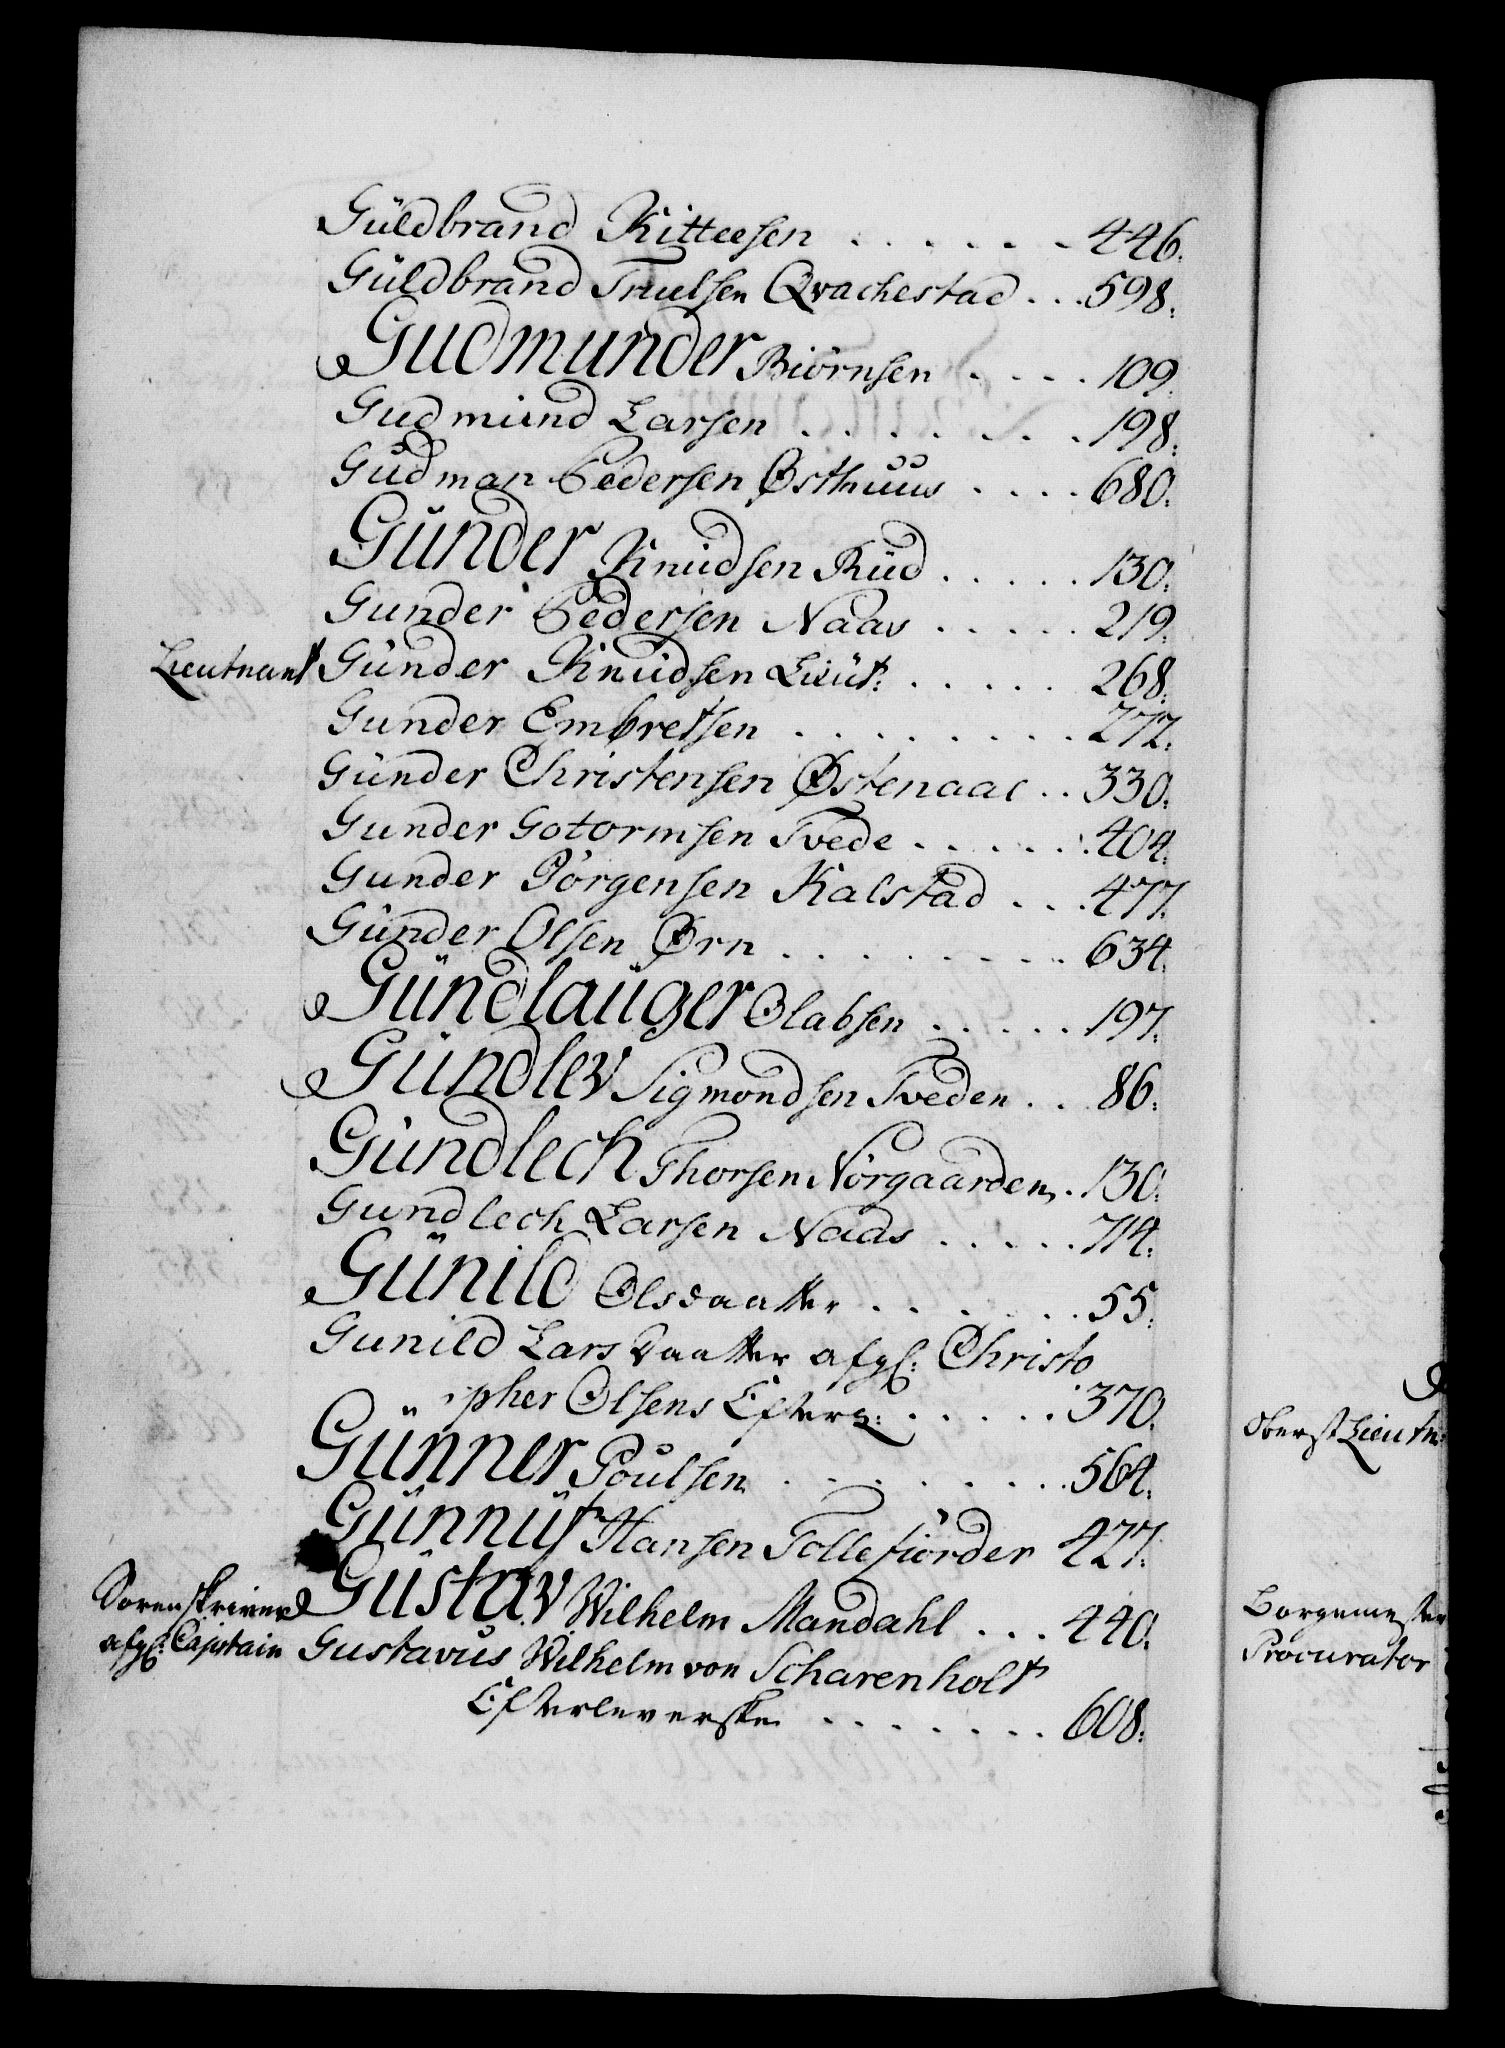 Güldbrand Kitteesen . . . . . . 446.
Güldbrand Truelsen Qvachestad . . . 598.
Gudmunder Biörnsen . . . . 109.
Gudmund Larsen . . . . . . . 198.
Gudman Pedersen Østhuus . . . . 680.
Günder Knudsen Rüd . . . . . 130.
Gunder Pedersen Naas . . . . . 219.
Lieutnant Günder Knudsen Lieut: . . . . . 268.
Gunder Embretsen . . . . . . . . . 272.
Günder Christensen Østenaae . . 330.
Gunder Gotormsen Tvede . . . . . . 404.
Gunder Jörgensen Kalstad . . . 477.
Günder Olsen Ørn . . . . . . . . . 634.
Gündlaüger Olabsen . . . . . 197.
Gündlev Sigmondsen Tveden . . . 86.
Gündlech Thorsen Nörgaarden . . 130.
Gundlech Larsen Naas . . . . . 714.
Günild Olsdaatter . . . . . . . 55.
Gunild Larsdaatter afgl: Christo
pher Olsens Efterl: . . . . . 370.
Günner Poulsen . . . . . . . . . 564.
Günnüf Hansen Tollefiörder 427.
Sorenskriver Güstav Wilhelm Mandahl . . . 440.
afgl: Capitain Gustavus Wilhelm von Scharenholt
Efterleverske . . . . . . . 608.
Oberst Lieutn:
Borgemester
Procurator